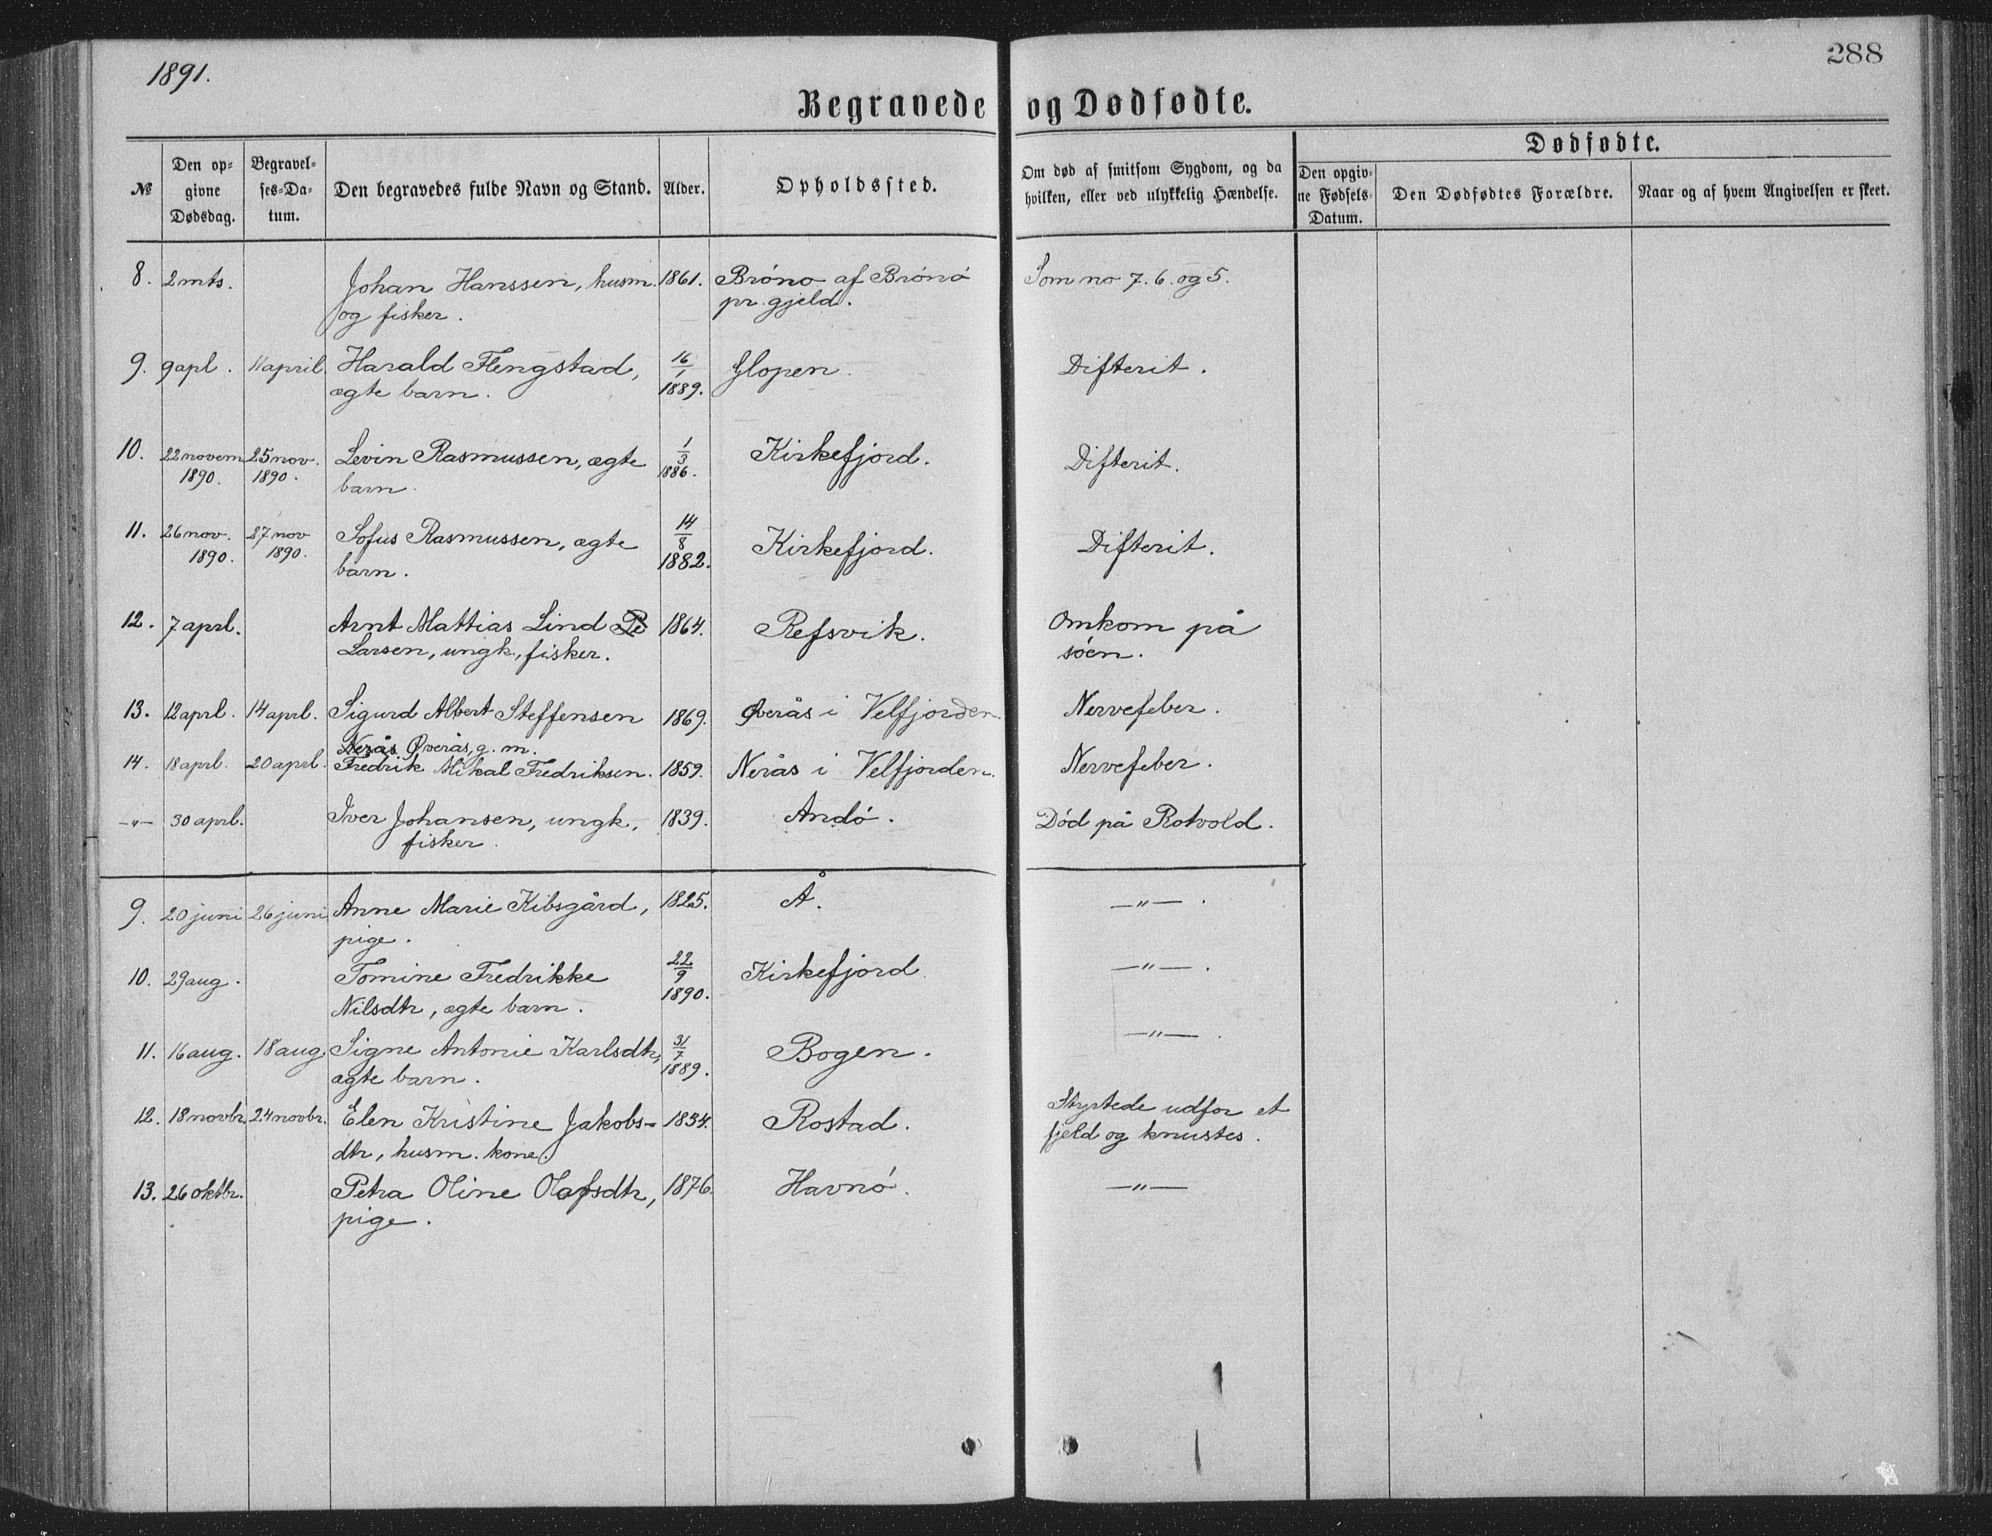 1891.
288
Begravede og Dødfødte.
Dødfødte.
№
Den op-
givne
Dødsdag.
Begravel-
ses-Da-
tum.
Den begravedes fulde Navn og Stand.
Alder.
Opholdssted.
Om død af smitsom Sygdom, og da
hvilken, eller ved ulykkelig Hændelse.
Den opgiv-
ne Fødsels-
Datum.
Den Dødfødtes Forældre.
Naar og af hvem Angivelsen er skeet.
8. 2 mts. Johan Hanssen, husm. 1861. Brönö af Brönö Som no 7. 6. og 5.
og fisker. pr. gjeld.
9. 9 apl. 11 april. Harald Flengstad, 16/1 Glopen. Difterit.
ægte barn. 1889.
10. 22 novem 25 nov. Levin Rasmussen, ægte 1/3 Kirkefjord. Difterit.
1890. 1890. barn. 1886.
11. 26 nov. 27 nov Sofus Rasmussen, ægte 14/8 Kirkefjord. Difterit.
1890. 1890. barn. 1882.
12. 7 aprl. Arnt Mattias Lind Pe 1864. Refsvik. Omkom på
Larsen, ungk., fisker. söen.
13. 12 aprl. 14 aprl. Sigurd Albert Steffensen 1869. Øverås i Velfjorden. Nervefeber.
Nerås Øverås, g. m.
14. 18 aprl. 20 aprl. Fredrik Mikal Fredriksen. 1859. Nerås i Velfjorden. Nervefeber.
-"- 30 aprl. Iver Johansen, ungk., 1839. Andö. Död på Rotvold.
fisker.
9. 20 juni 26 juni Anne Marie Kibsgård, 1825. Å. -"-.
pige.
10. 29 aug. Tomine Fredrikke 22/9 Kirkefjord. -"-.
Nilsdtr, ægte barn. 1890.
11. 16 aug. 18 aug Signe Antonie Karlsdtr, 31/7 Bogen. -"-.
ægte barn. 1889.
12. 18 novbr. 24 novbr. Elen Kristine Jakobs- 1834. Rostad. Styrtede udfor et
dtr, husm. kone. fjeld og knustes.
13. 26 oktbr. Petra Oline Olafsdtr, 1876. Havnö. -"-
pige.